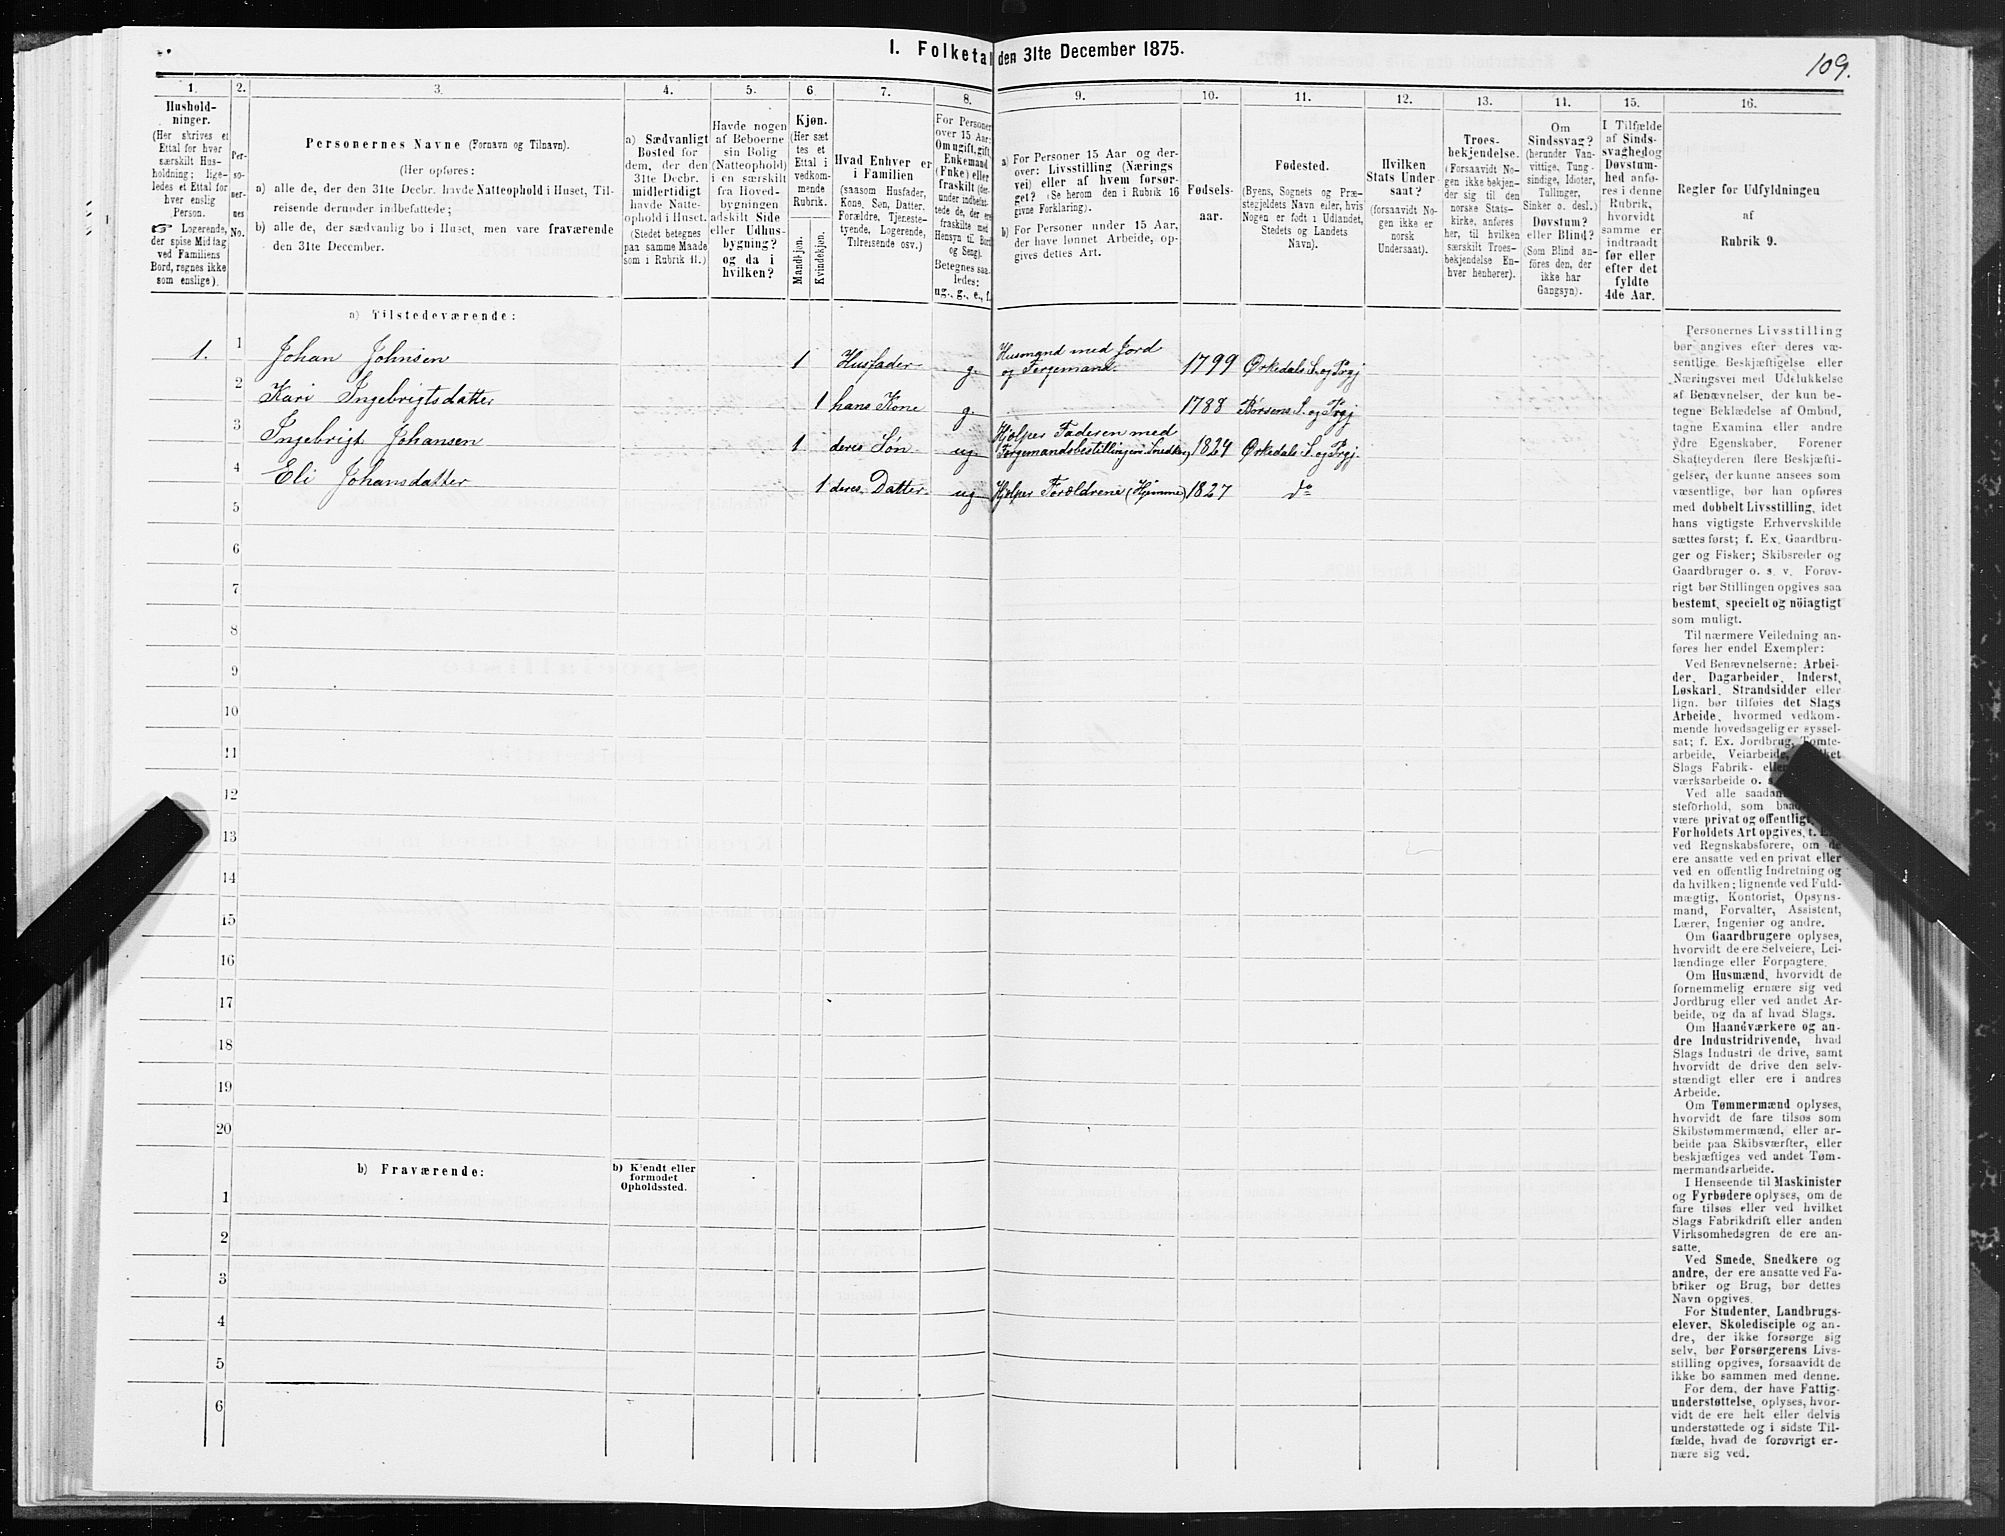 I. Folketal den 31te December 1875.
109.
1.
2.
3.
4.
5.
6
7.
8.
9.
10.
11.
12.
13.
14.
15.
16.
Hushold-
ninger.
(Her skrives et
Ettal for hver
særskilt Hus-
holdning; lige-
ledes et Ettal for
hver enslig
Person.
☞ Logerende,
der spise Middag
ved Familiens
Bord, regnes ikke
som enslige).
Per-
so-
ner-
nes
No.
Personernes Navne (Fornavn og Tilnavn).
(Her opføres:
a) alle de, der den 31te Decbr. havde Natteophold i Huset, Til-
reisende derunder indbefattede;
b) alle de, der sædvanlig bo i Huset, men vare fraværende
den 31te December.
a) Sædvanligt
Bosted for
dem, der den
31te Decbr.
midlertidigt
havde Natte-
ophold i Huset.
(Stedet betegnes
paa samme Maade
som i Rubrik 11.)
Havde nogen
af Beboerne
sin Bolig
(Natteophold)
i en særskilt
fra Hoved-
bygningen
adskilt Side
eller Udhus-
bygning?
og da i
hvilken?
Kjøn.
(Her sæt-
tes et
Ettal i
vedkom-
mende
Rubrik.
Mandkjøn.
Kvindekjøn.
Hvad Enhver er
i Familien
(saasom Husfader,
Kone, Søn, Datter,
Forældre, Tjeneste-
tyende, Logerende,
Tilreisende osv.)
For Personer
over 15 Aar:
Om ugift, gift,
Enkemand
(Enke) eller
fraskilt (der-
under indbefat-
tede de, der ere
fraskilte med
Hensyn til Bord
og Seng).
Betegnes saa-
ledes:
ug., g., e., f.
a) For Personer 15 Aar og der-
over: Livsstilling (Nærings-
vei) eller af hvem forsør-
get? (Se herom den i Rubrik 16
givne Forklaring).
b) For Personer under 15 Aar,
der have lønnet Arbeide, op-
gives dettes Art.
Fødsels-
aar.
Fødested.
(Byens, Sognets og Præ-
stegjeldets Navn eller, hvis
Nogen er født i Udlandet,
Stedets og Landets
Navn).
Hvilken
Stats Under-
saat?
(forsaavidt No-
gen ikke er
norsk
Undersaat).
Troes-
bekjendelse.
(Forsaavidt No-
gen ikke bekjen-
der sig til den
norske Stats-
kirke, anføres
her, til hvilken
særskilt Troes-
bekjendelse En-
hver henhører).
Om
Sindssvag?
(herunder Van-
vittige, Tung-
sindige, Idioter,
Tullinger,
Sinker o. desl.)
Døvstum?
eller Blind?
(Som Blind an-
føres den, der
ikke har
Gangsyn).
I Tilfælde
af Sinds-
svaghed og
Døvstum-
hed anfø-
res i denne
Rubrik,
hvorvidt
samme er
indtraadt
før eller
efter det
fyldte
4de Aar.
Regler for Udfyldningen
af
Rubrik 9.
a) Tilstedeværende:
1. 1 Johan Johnsen 1 Husfader g. Husmand med Jord og Færgemand. 1799 Ørkedals S. og Prgj
2 Kari Ingebrigtsdatter 1 hans Kone g. 1788 Børsens S. og Prgj
3 Ingebrigt Johansen 1 deres Søn ug. Hjælper Faderen med Færgemandsbestillingen. Snedker) 1824 Ørkedals S. og Prgj.
4 Eli Johansdatter 1 deres Datter ug Hjælper Forældrene (Hjemme) 1827 do
5
6
7
8
9
10
11
12
13
14
15
16
17
18
19
20
b) Fraværende:
b) Kjendt eller
formodet
Opholdssted.
1
2
3
4
5
6
Personernes Livsstilling
bør angives efter deres væ-
sentlige Beskjæftigelse eller
Næringsvei med Udelukkelse
af Benævnelser, der kun be-
tegne Beklædelse af Ombud,
tagne Examina eller andre
ydre Egenskaber. Forener
Skatteyderen flere Beskjæfti-
gelser, der kunne ansees som
væsentlige, bør han opføres
med dobbelt Livsstilling, idet
hans vigtigste Erhvervskilde
sættes først; f. Ex. Gaardbru-
ger og Fisker; Skibsreder og
Gaardbruger o. s. v. Forøv-
rigt bør Stillingen opgives saa
bestemt, specielt og nöiagtigt
som muligt.
Til nærmere Veiledning an-
føres her endel Exempler:
Ved Benævnelserne: Arbei-
der, Dagarbeider, Inderst,
Løskarl, Strandsidder eller
lign. bør tilføies det Slags
Arbeide, hvormed vedkom-
mende hovedsagelig er syssel-
sat; f. Ex. Jordbrug, Tomte-
arbeide, Veiarbeide,
Slags Fabrik-
værksarbeide o.
Ved alle
steforhold, som
være privat og offentligt,
Forholdets Art opgives, t.
ved Regnskabsførere, om de
ere ansatte ved en privat eller
ved en offentlig Indretning og
da hvilken; lignende ved Fuld-
mægtig, Kontorist, Opsyns-
mand, Forvalter, Assistent,
Lærer, Ingeniør og andre.
Om Gaardbrugere oplyses,
hvorvidt de ere Selveiere, Lei-
lændinge eller Forpagtere.
Om Husmænd, hvorvidt de
fornemmelig ernære sig ved
Jordbrug eller ved andet Ar-
beide, og da af hvad Slags.
Om Haandværkere og an-
dre Industridrivende, hvad
Slags Industri de drive, samt
hvorvidt de drive den selv-
stændigt eller ere i andres
Arbeide.
Om Tømmermænd oplyses,
hvorvidt de fare tilsøs som
Skibstømmermænd, eller ar-
beide paa Skibsværfter, eller
beskjæftiges ved andet Tøm-
mermandsarbeide.
I Henseende til Maskinister
og Fyrbødere oplyses, om de
fare tilsøs eller ved hvilket
Slags Fabrikdrift eller anden
Virksomhedsgren de ere an-
satte.
Ved Smede, Snedkere og
andre, der ere ansatte ved Fa-
briker og Brug, bør dettes
Navn opgives.
For Studenter, Landbrugs-
elever, Skoledisciple og an-
dre, der ikke forsørge sig
selv, bør Forsørgerens Livs-
stilling opgives, forsaavidt de
ikke bo sammen med denne.
For dem, der have Fattig-
understøttelse, oplyses, hvor-
vidt de ere helt eller delvis
understøttede og i sidste Til-
fælde, hvad de forøvrigt er-
nære sig ved.